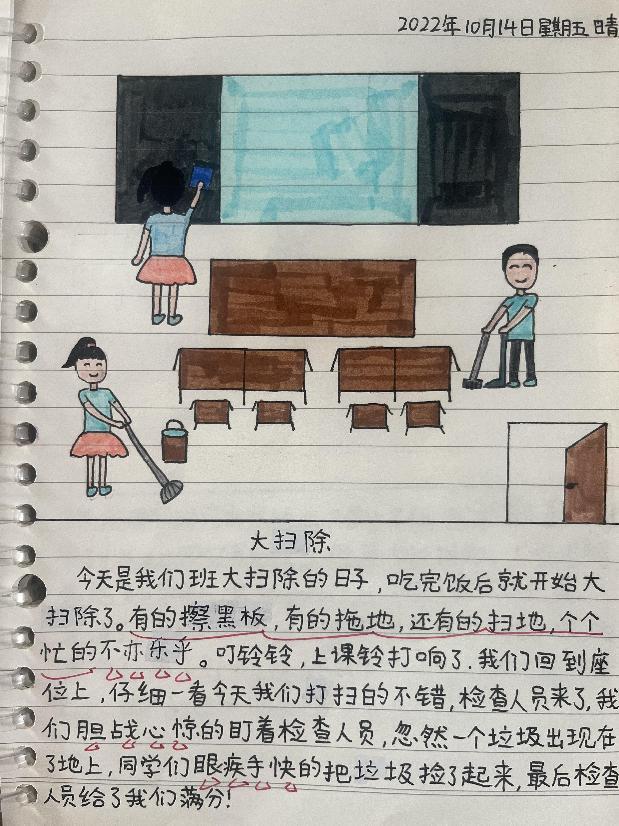 2022年10月14日星期五 晴
大扫除
今天是我们班大扫除的日子,吃完饭后就开始大
扫除了。有的擦黑板,有的拖地,还有的扫地,个个
忙的不亦乐乎。叮铃铃,上课铃打响了.我们回到座
位上,仔细一看今天我们打扫的不错,检查人员来了,我
们胆战心惊的盯着检查人员,忽然一个垃圾出现在
了地上,同学们眼疾手快的把垃圾捡了起来,最后检查
人员给了我们满分!